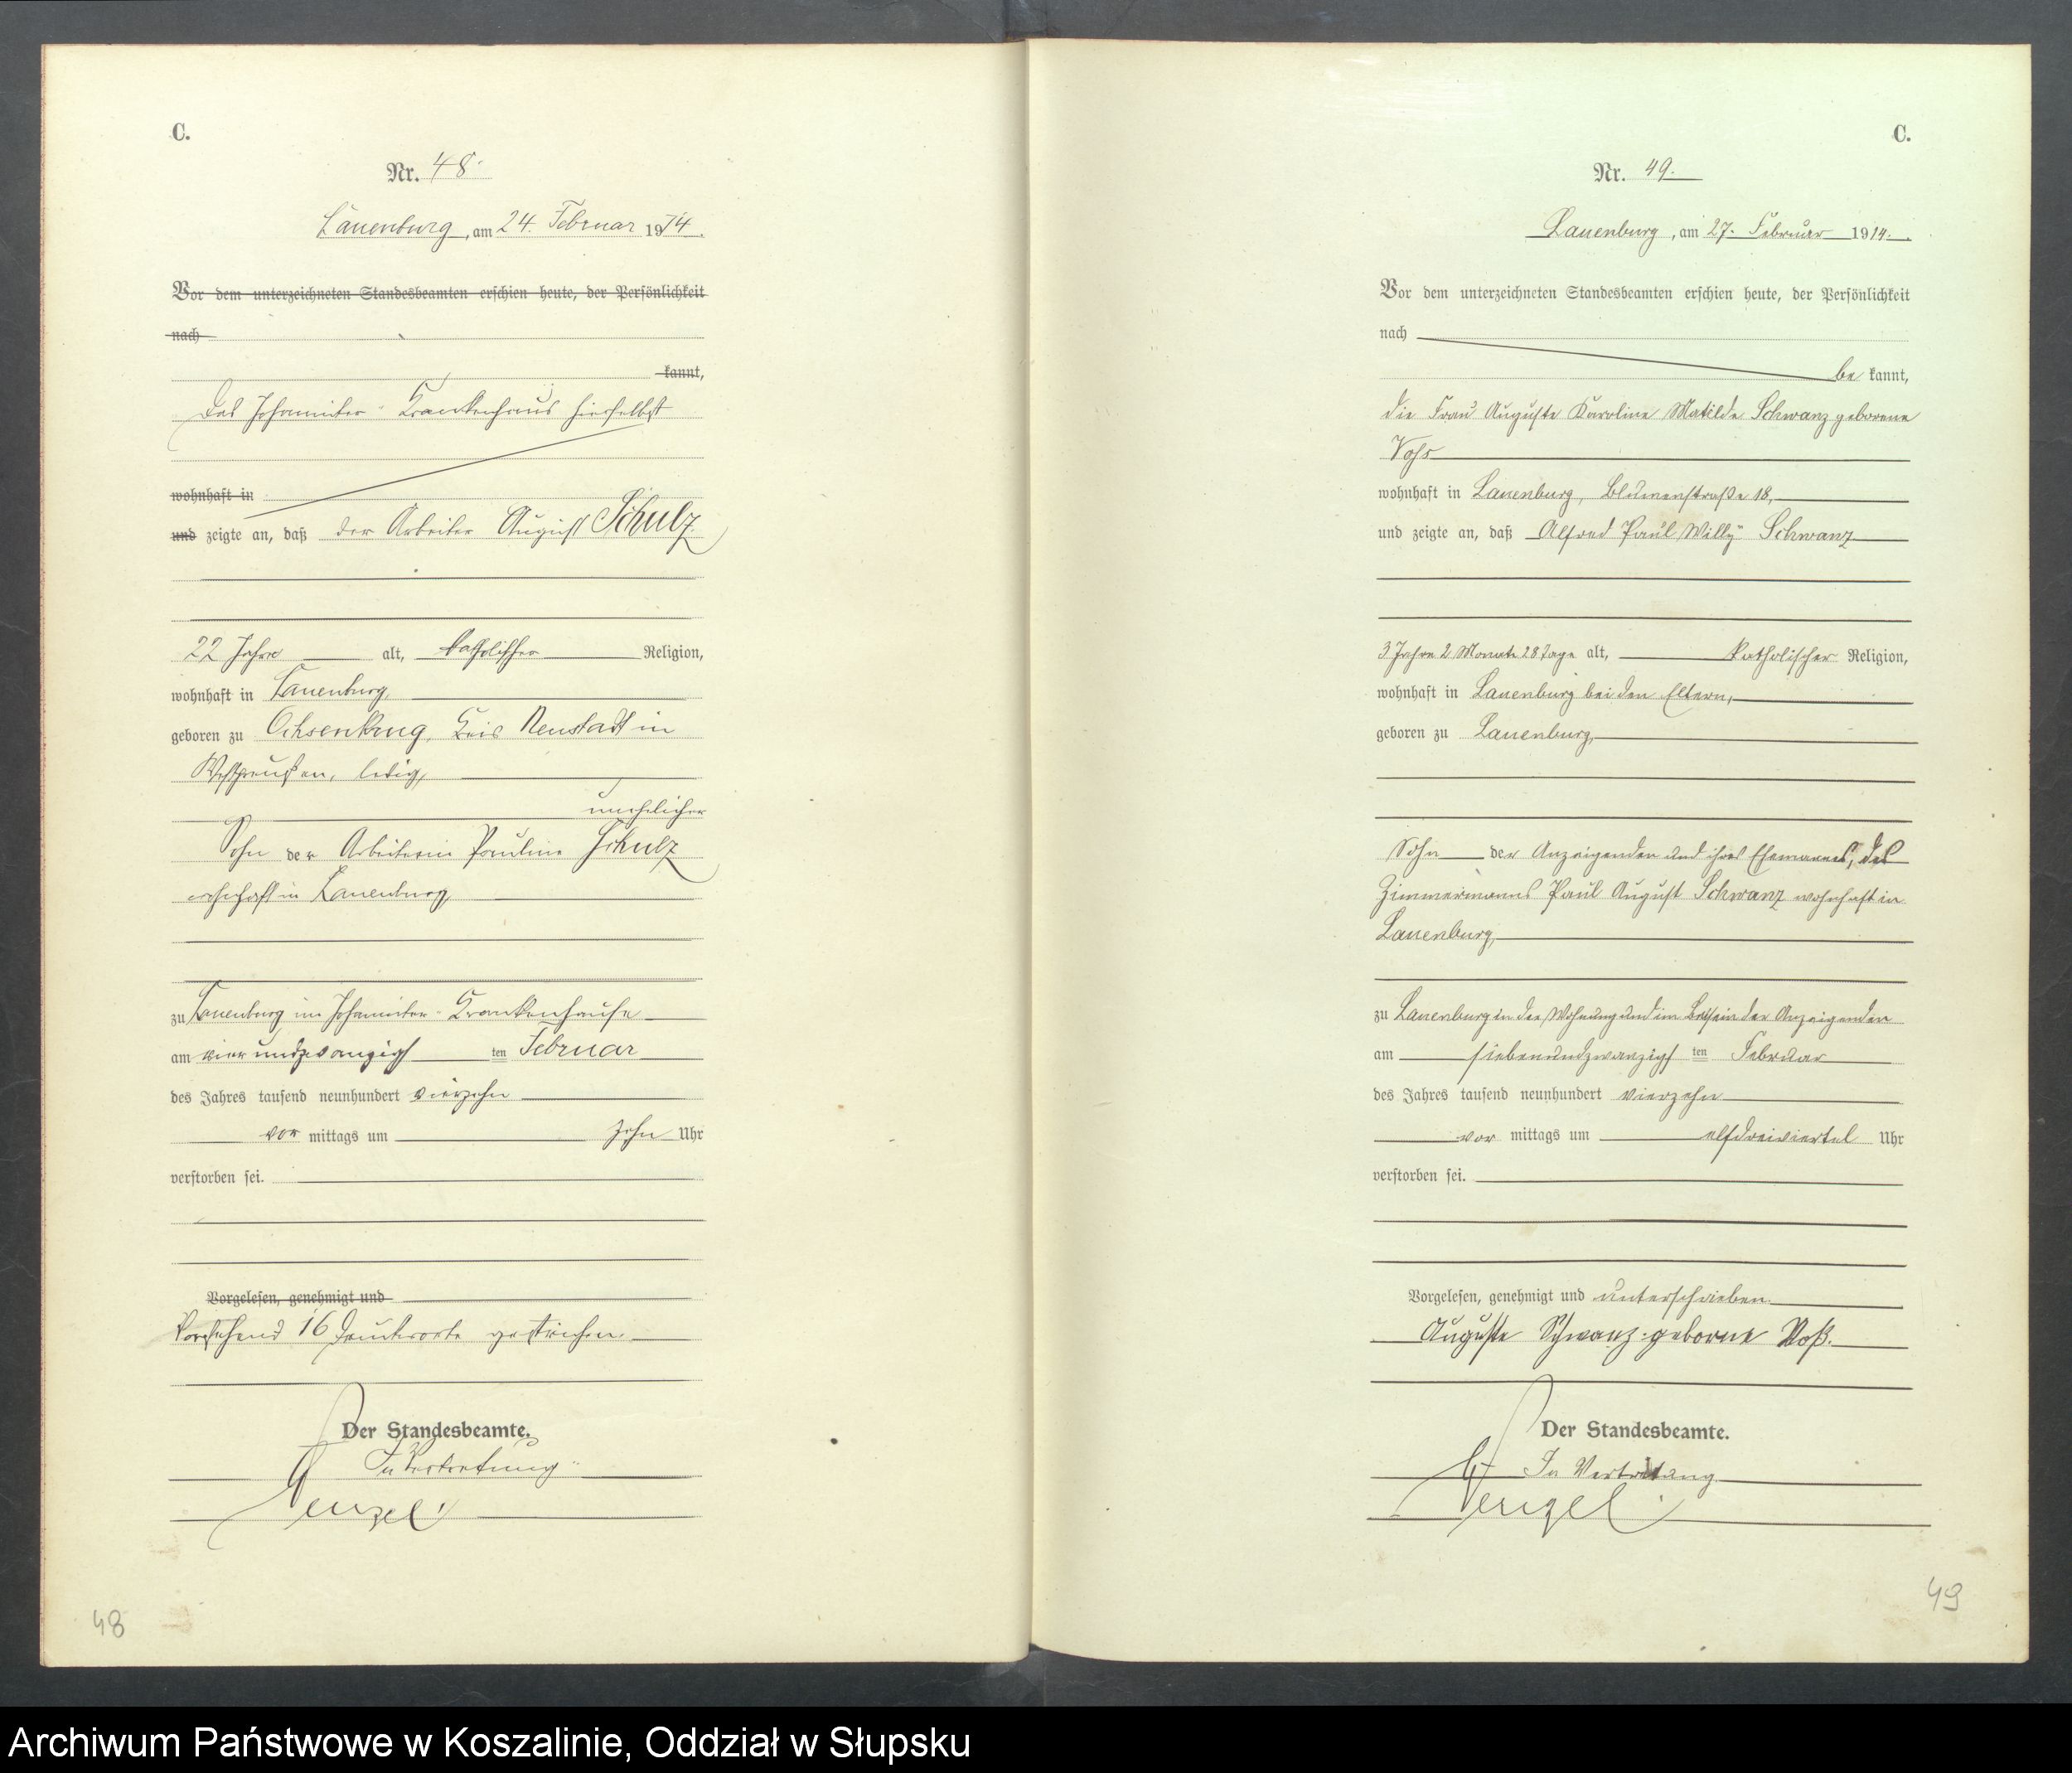 C.
Nr. 48.
Lauenburg, am 24. Februar 1914.
Vor dem unterzeichneten Standesbeamten erschien heute, der Persönlichkeit
nach
kannt,
Das Johanniter-Krankenhaus hierselbst
wohnhaft in
und zeigte an, daß der Arbeiter August Schulz
22 Jahre alt, katholischer Religion,
wohnhaft in Lauenburg,
geboren zu Ochsenkrug, Kreis Neustadt in
Westpreußen, ledig,
unehelicher
Sohn der Arbeiterin Pauline Schulz
wohnhaft in Lauenburg,
zu Lauenburg im Johanniter-Krankenhause
am vierundzwanzigsten Februar
des Jahres tausend neunhundert vierzehn
vor mittags um zehn Uhr
verstorben sei.
Vorgelesen, genehmigt und
Vorstehend 16 Druckworte gestrichen.
Der Standesbeamte.
In Vertretung
48
C.
Nr. 49.
Lauenburg, am 27. Februar 1914.
Vor dem unterzeichneten Standesbeamten erschien heute, der Persönlichkeit
nach
be kannt,
die Frau Auguste Karoline Matilde Schwanz geborene
Vohs
wohnhaft in Lauenburg, Blumenstraße 18,
und zeigte an, daß Alfred Paul Willy Schwanz
3 Jahre 2 Monate 28 Tage alt, katholischer Religion,
wohnhaft in Lauenburg bei den Eltern,
geboren zu Lauenburg,
Sohn der Anzeigenden und ihres Ehemannes, des
Zimmermanns Paul August Schwanz wohnhaft in
Lauenburg,
zu Lauenburg in der Wohnung und im Beisein der Anzeigenden
am siebenundzwanzigsten Februar
des Jahres tausend neunhundert vierzehn
vor mittags um elfdreiviertel Uhr
verstorben sei.
Vorgelesen, genehmigt und unterschrieben.
Auguste Schwanz geborne Voß.
Der Standesbeamte.
In Vertretung
49
Archiwum Państwowe w Koszalinie, Oddział w Słupsku